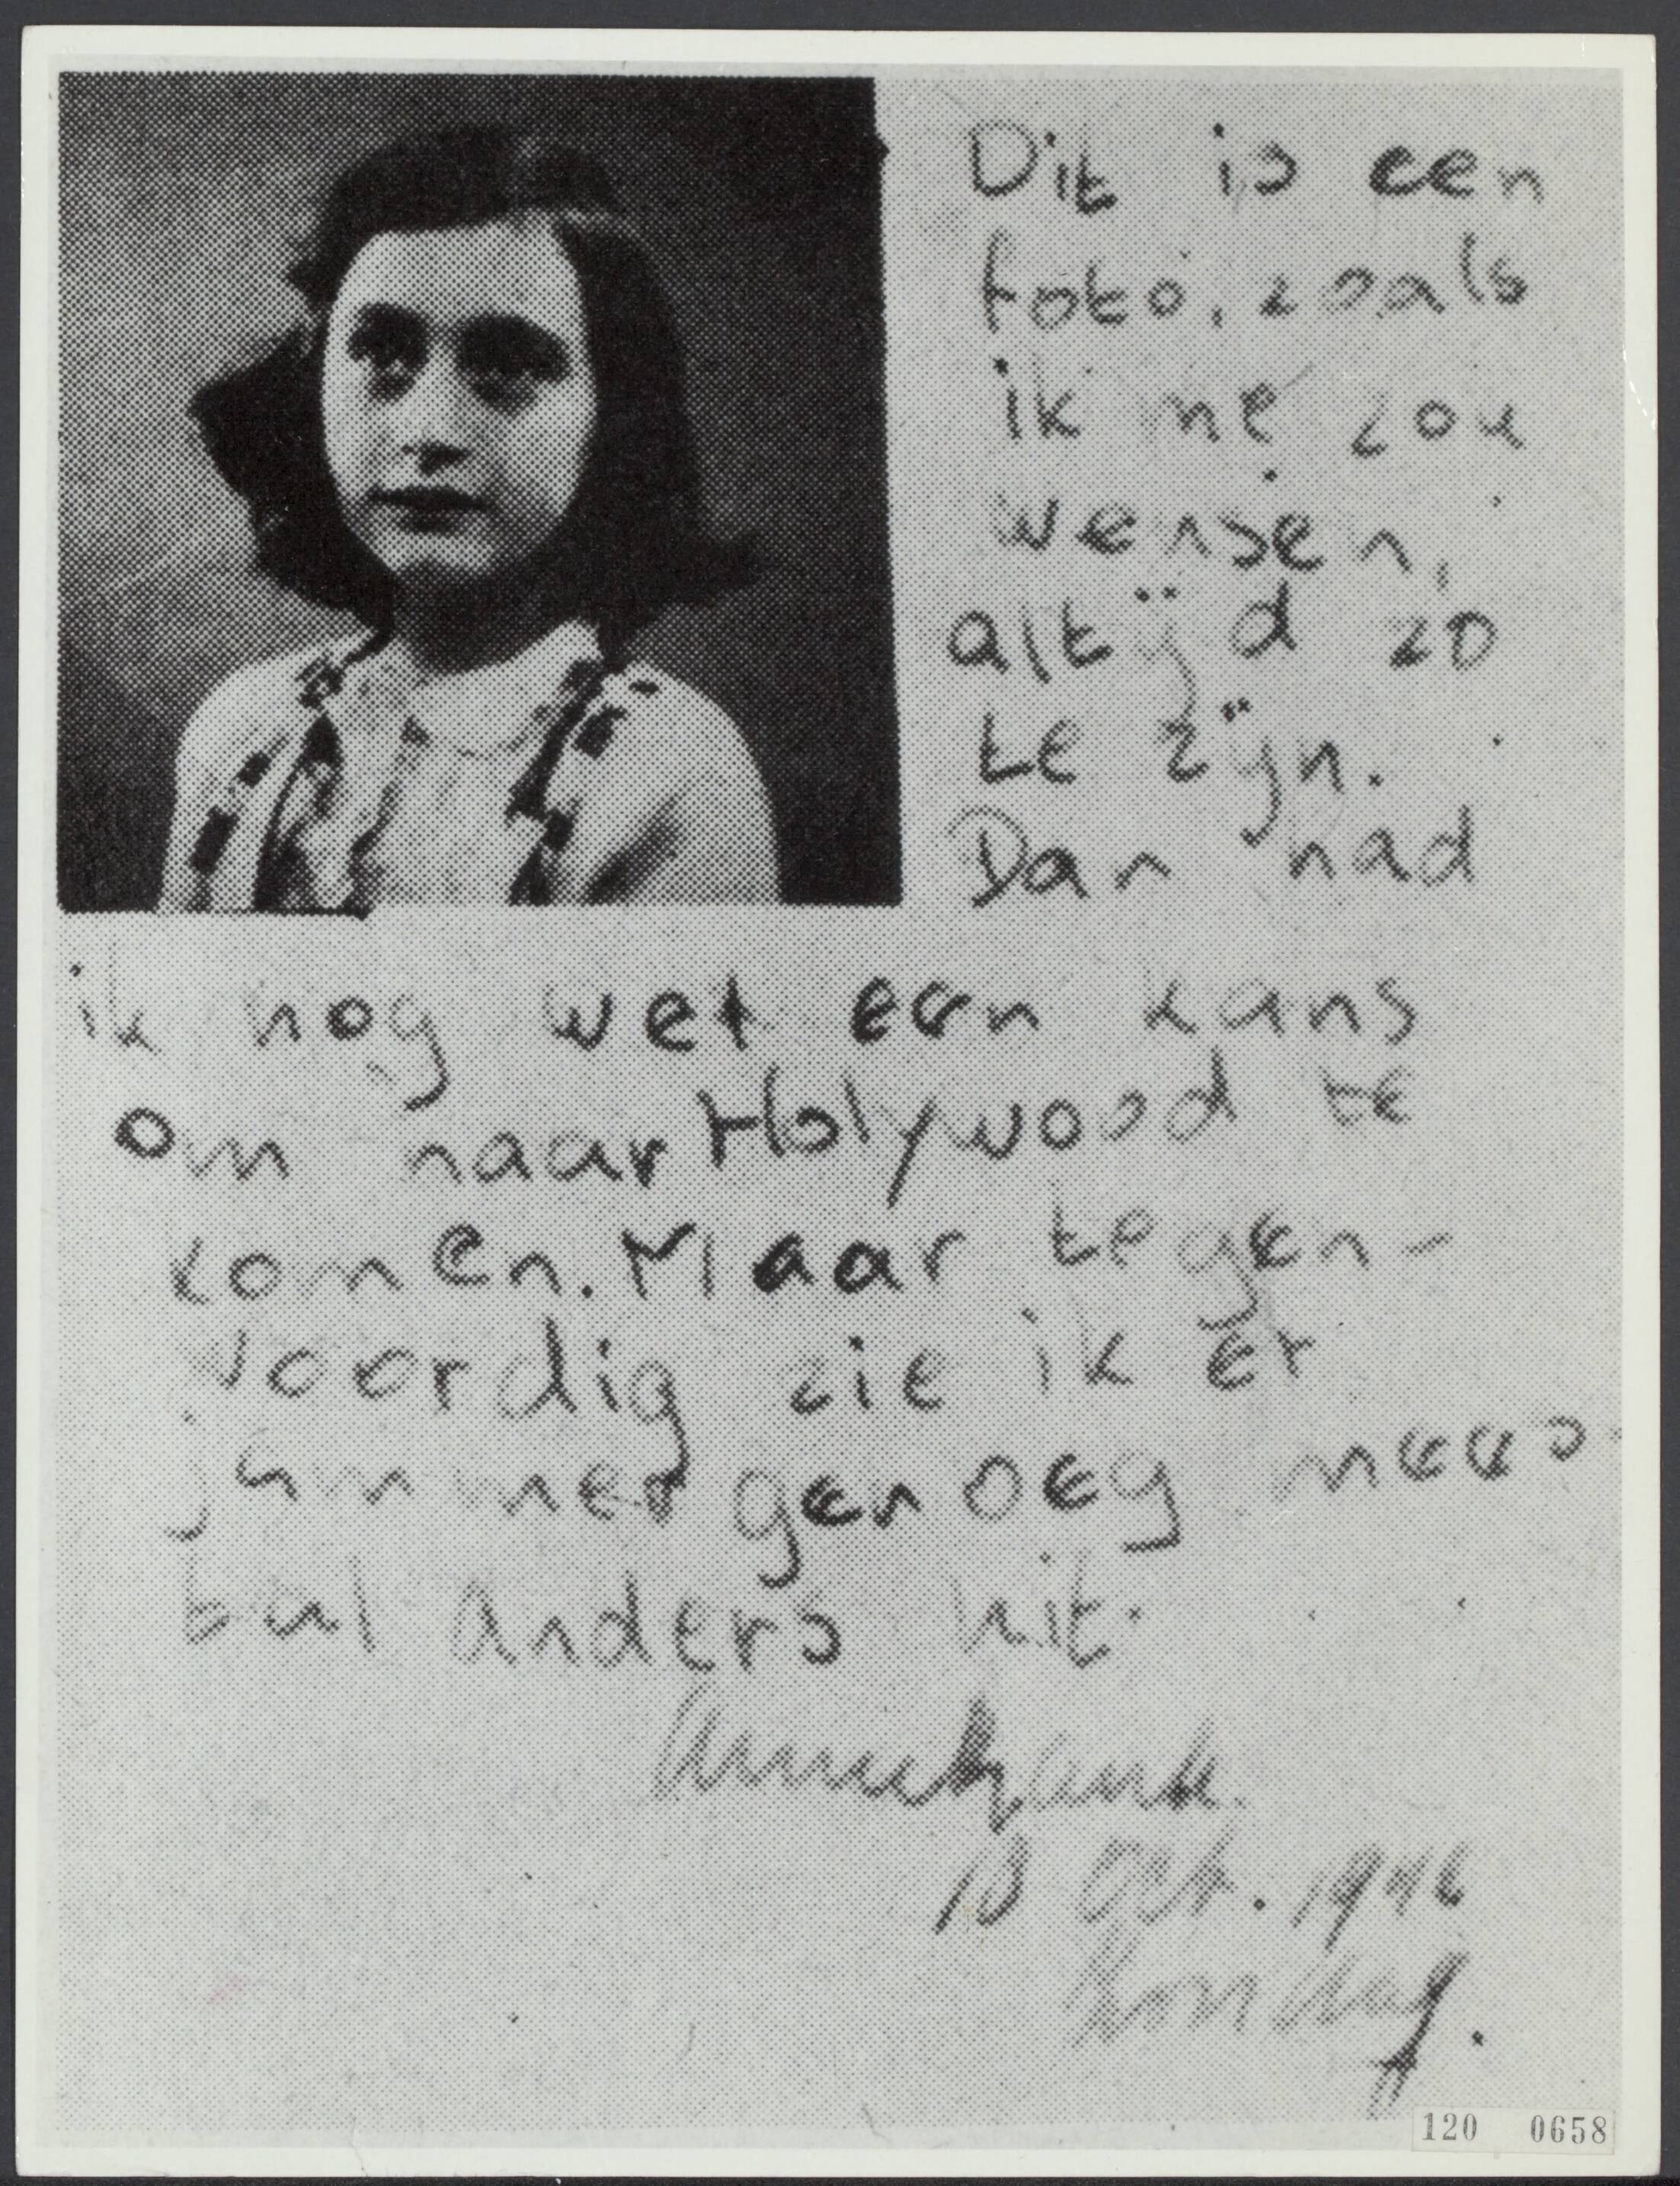 Dit is een
foto, zoals
ik me zou
wensen,
altijd zo
te zijn.
Dan had
ik nog wel een kans
om naar Holywood te
komen. Maar tegen-
voordig zie ik er
jammer genoeg mees-
tal anders uit.
Annefrank.
10 Oct. 1942
Zondag.
120 0658